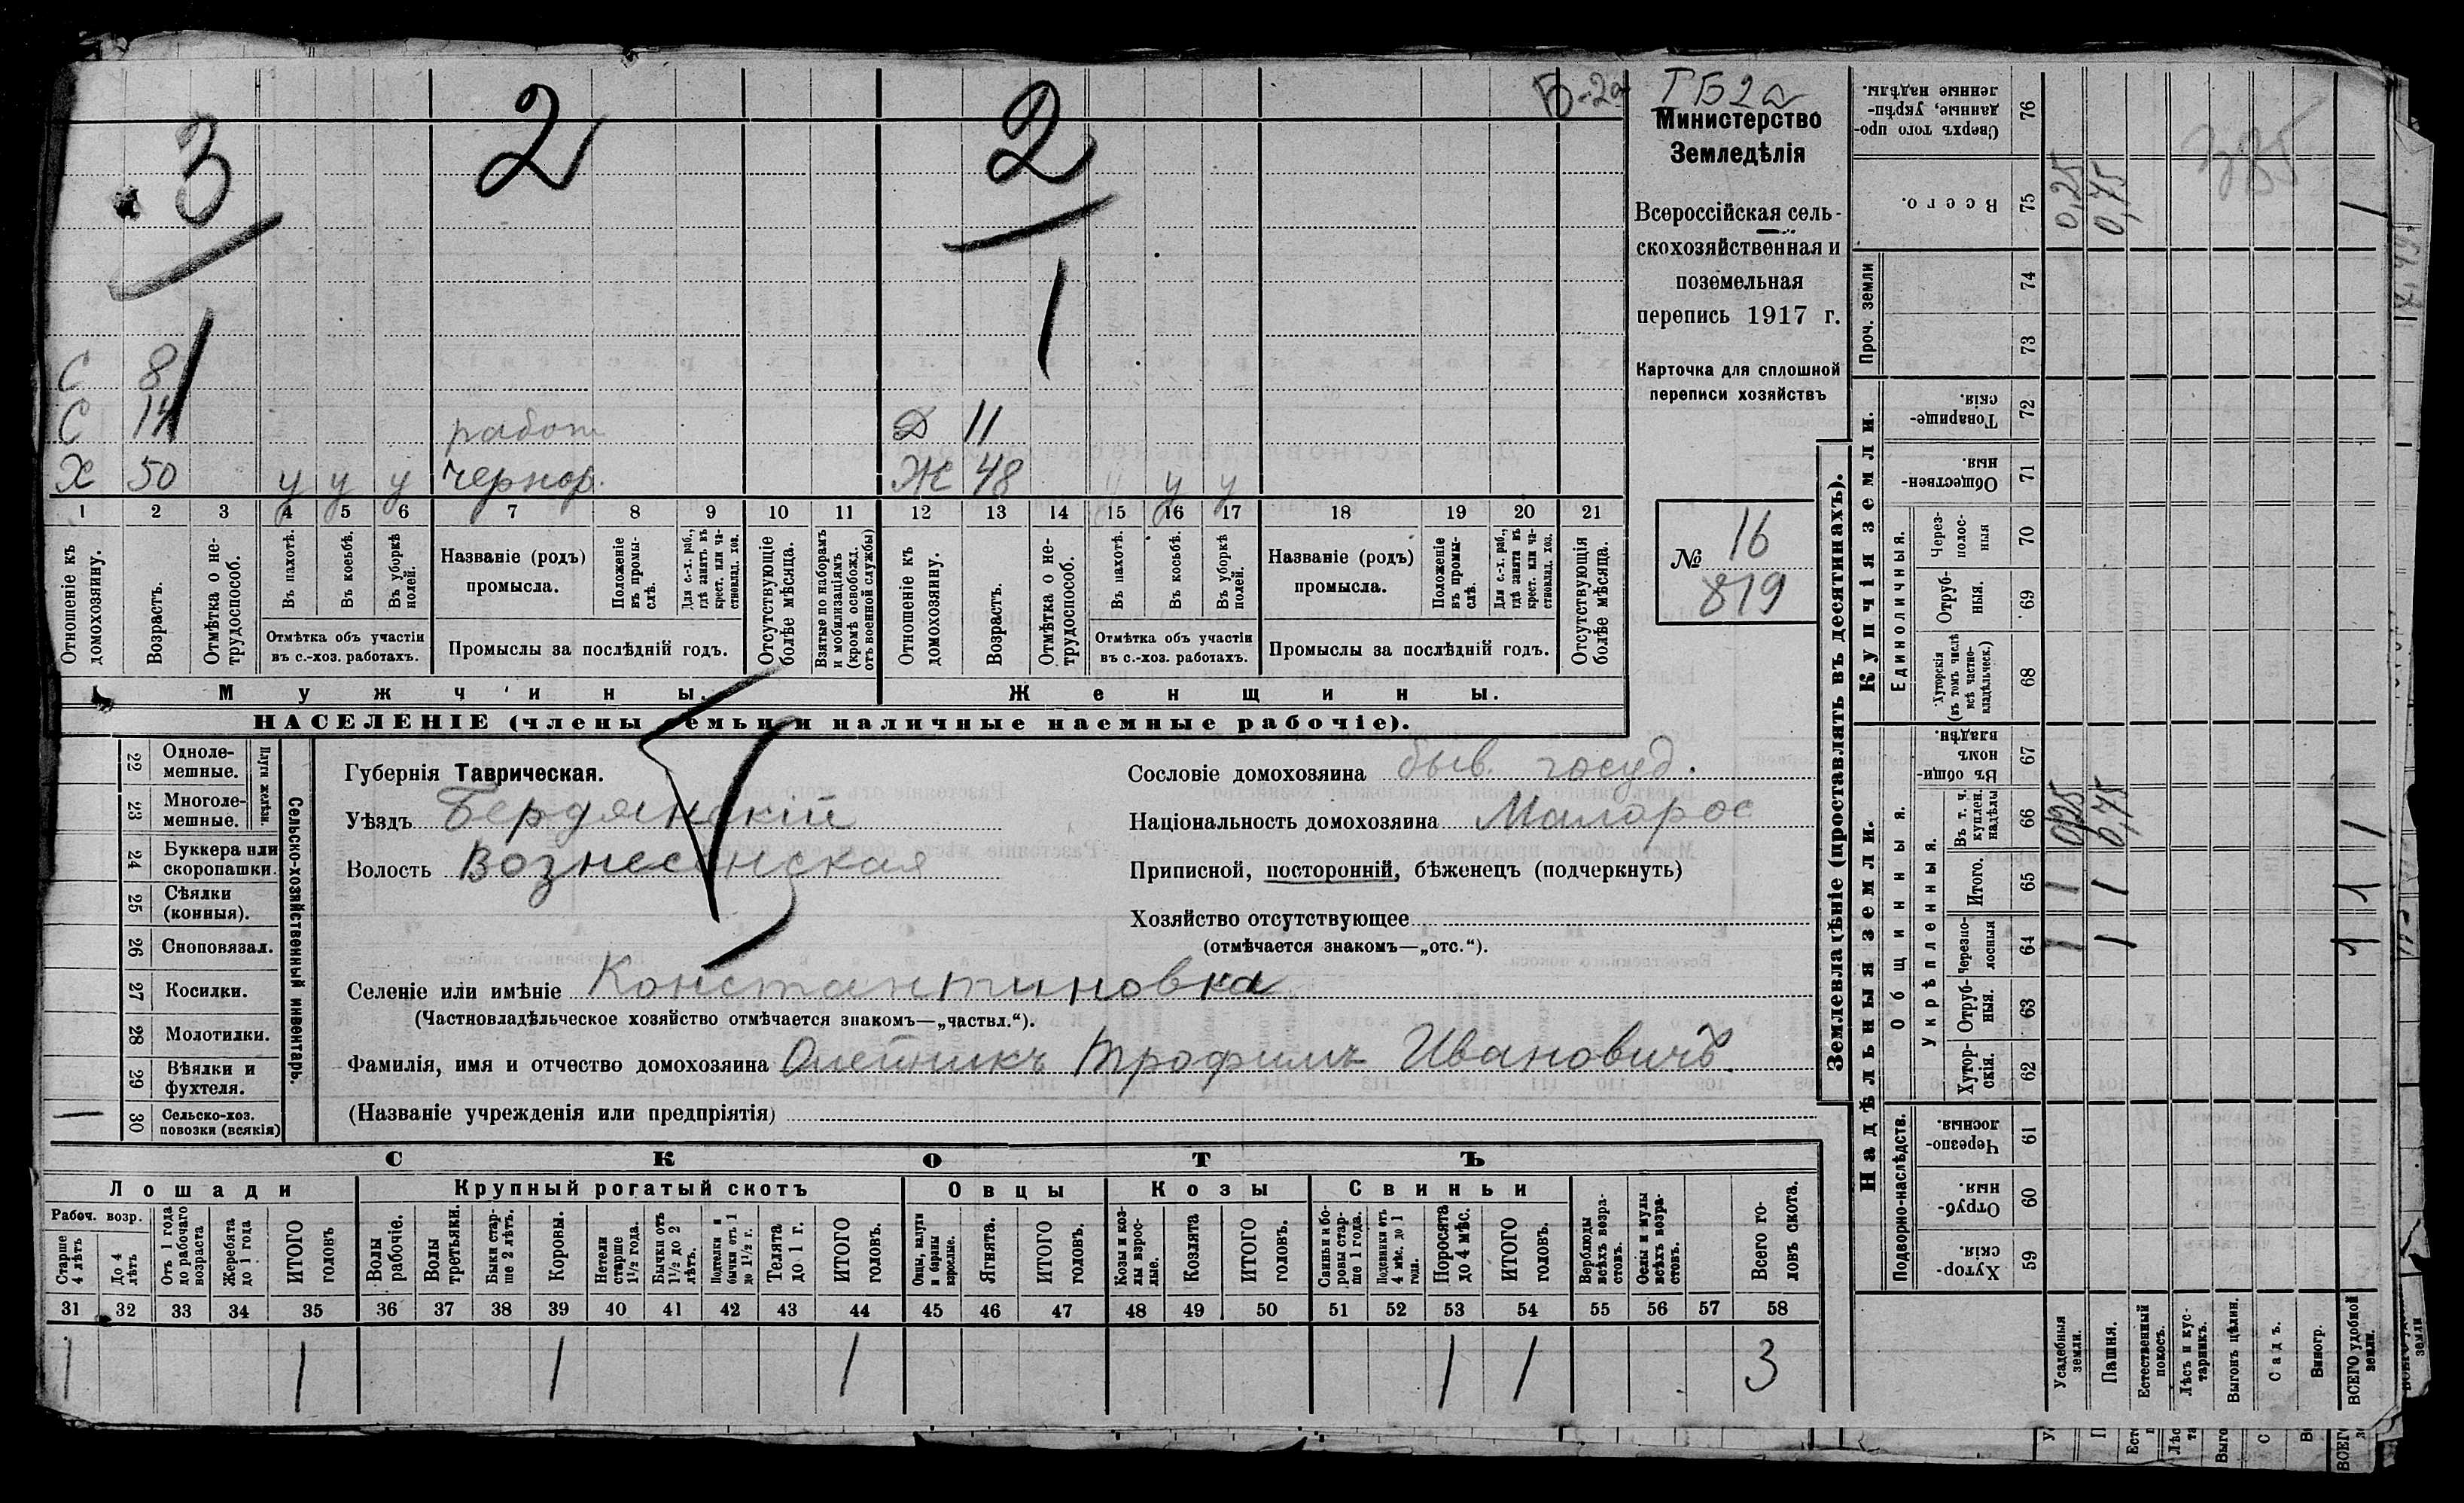 3 2 2 Б-2а
1
С 8
С 14 работ Д 11
Х 50 у у у чернор. Ж 48 у у у
1 2 3 4 5 6 7 8 9 10 11 12 13 14 15 16 17 18 19 20 21
Отношеніе къ домохозяину.
Возрастъ.
Отмѣтка о не-трудоспособ.
Въ пахотѣ.
Въ косьбѣ.
Въ уборкѣ полей.
Отмѣтка объ участіи
въ с.-хоз. работахъ.
Названіе (родъ)
промысла.
Положеніе въ промы-слѣ.
Для с.-х. раб., гдѣ занятъ въ крест. или ча-стновлад. хоз.
Промыслы за послѣдній годъ.
Отсутствующіе болѣе мѣсяца.
Взятые по наборамъ и мобилизаціямъ (кромѣ освобожд. отъ военной службы)
Отношеніе къ домохозяину.
Возрастъ.
Отмѣтка о не-трудоспособ.
Въ пахотѣ.
Въ косьбѣ.
Въ уборкѣ полей.
Отмѣтка объ участіи
въ с.-хоз. работахъ.
Названіе (родъ)
промысла.
Положеніе въ промы-слѣ.
Для с.-х. раб., гдѣ занята въ крест. или ча-стновлад. хоз.
Промыслы за послѣдній годъ.
Отсутствующія болѣе мѣсяца.
Мужчины. Женщины.
НАСЕЛЕНІЕ (члены семьи и наличные наемные рабочіе).
ТБ2а
Министерство
Земледѣлія
Всероссійская сель-
скохозяйственная и
поземельная
перепись 1917 г.
Карточка для сплошной
переписи хозяйствъ
№ 16
819
Сельско-хозяйственный инвентарь.
Плуги желѣзн.
22 Одноле-мешные.
23 Многоле-мешные.
24 Буккера или скоропашки.
25 Сѣялки (конныя).
26 Сноповязал.
27 Косилки.
28 Молотилки.
29 Вѣялки и фухтеля.
30 Сельско-хоз. повозки (всякія)
Губернія Таврическая.
Уѣздъ Бердянскій
Волость Вознесенская
Сословіе домохозяина быв. госуд.
Національность домохозяина Малорос
Приписной, посторонній, бѣженецъ (подчеркнуть)
Хозяйство отсутствующее
(отмѣчается знакомъ—„отс.“).
Селеніе или имѣніе Константиновка
(Частновладѣльческое хозяйство отмѣчается знакомъ—„частвл.“).
Фамилія, имя и отчество домохозяина Олейникъ Трофимъ Ивановичъ.
(Названіе учрежденія или предпріятія)
СКОТЪ
Лошади Крупный рогатый скотъ Овцы Козы Свиньи
Рабоч. возр.
Старше 4 лѣтъ
До 4 лѣтъ
Отъ 1 года до рабочаго возраста
Жеребята до 1 года
ИТОГО головъ
Волы рабочіе.
Волы третьяки.
Быки стар-ше 2 лѣтъ.
Коровы.
Нетели старше 1½ года.
Бычки отъ 1½ до 2 лѣтъ.
Подтелки и бычки отъ 1 до 1½ г.
Телята до 1 г.
ИТОГО головъ.
Овцы, валухи и бараны взрослые.
Ягнята.
ИТОГО головъ.
Козы и коз-лы взрос-лые.
Козлята
ИТОГО головъ.
Свиньи и бо-ровы стар-ше 1 года.
Подсвинки отъ 4 мѣс. до 1 года.
Поросята до 4 мѣс.
ИТОГО головъ.
Верблюды всѣхъ возра-стовъ.
Ослы и мулы всѣхъ возра-стовъ.
Всего го-ловъ скота.
31 32 33 34 35 36 37 38 39 40 41 42 43 44 45 46 47 48 49 50 51 52 53 54 55 56 57 58
1 1 1 1 1 1 3
Землевладѣніе (проставлять въ десятинахъ).
Сверхъ того про-данные, укрѣп-ленные надѣлы. 76
Всего. 75 0,25 0,75 1
Проч. земли
74
73
Купчія земли.
Товарище-скія. 72
Обществен-ныя. 71
Единоличныя.
Через-полос-ныя 70
Отруб-ныя. 69
Хуторскія (въ томъ числѣ всѣ частно-владѣльческ.) 68
Надѣльныя земли.
Общинныя.
Въ общин-номъ владѣн. 67
Укрѣпленныя.
Въ т. ч. куплен. надѣлы 66 0,25 0,75 1
Итого. 65 1 1 1
Черезпо-лосныя 64 1 1 1
Отруб-ныя. 63
Хутор-скія. 62
Подворно-наслѣдств.
Черезпо-лосныя. 61
Отруб-ныя. 60
Хутор-скія. 59
Усадебныя земли.
Пашня.
Естественный покосъ.
Лѣсъ и кус-тарникъ.
Выгонъ цѣлин.
Садъ.
Виногр.
ВСЕГО удобной земли.